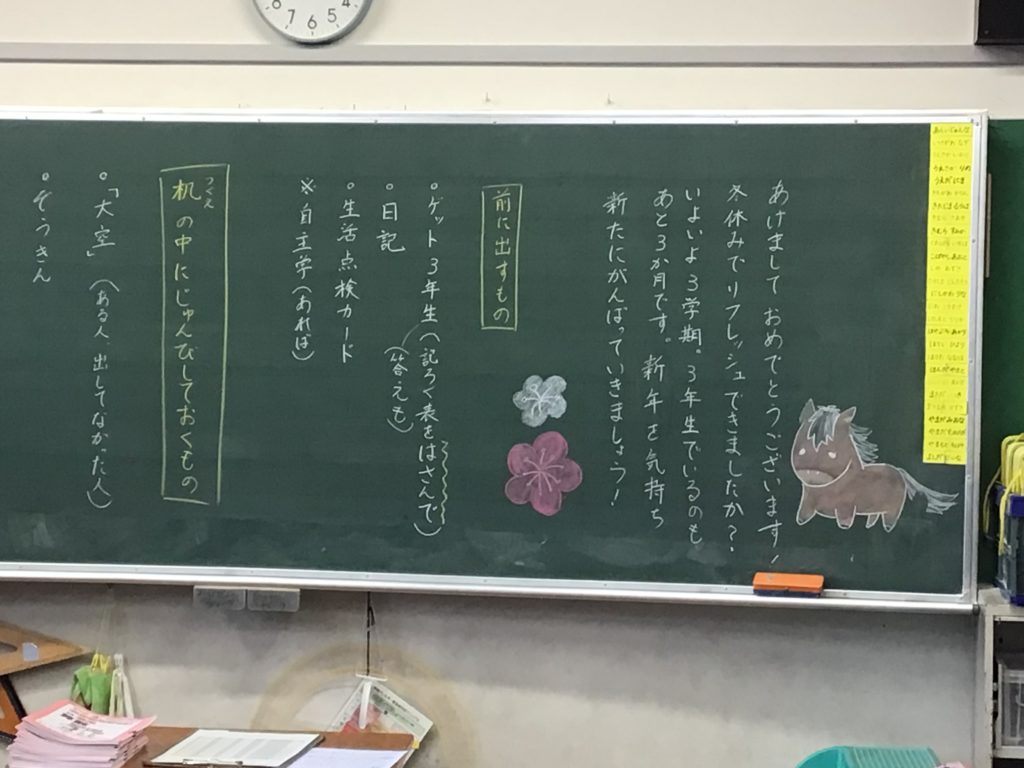 あけまして おめでとうございます！
冬休みでリフレッシュできましたか？
いよいよ３学期。３年生でいるのも
あと３か月です。新年を気持ち
新たにがんばっていきましょう！
前に出すもの
○ゲット３年生（記ろく表をはさんで）
（答えも）
○日記
○生活点検カード
※自主学（あれば）
つくえ
机の中にじゅんびしておくもの
○「大空」（ある人 出してなかった人）
○ぞうきん
8 7 6 5 4